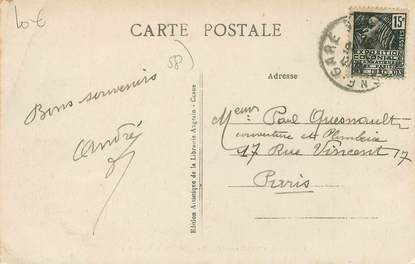 10-€
CARTE POSTALE
58
GARE
15c
EXPOSITION
COLONIALE
Adresse
Bons souvenirs
André
Meur Paul Quesnault
couverture et Plomberie
17 Rue Vincent 17
Paris
Edition Artistique de la Librairie Anglrain - Cosne